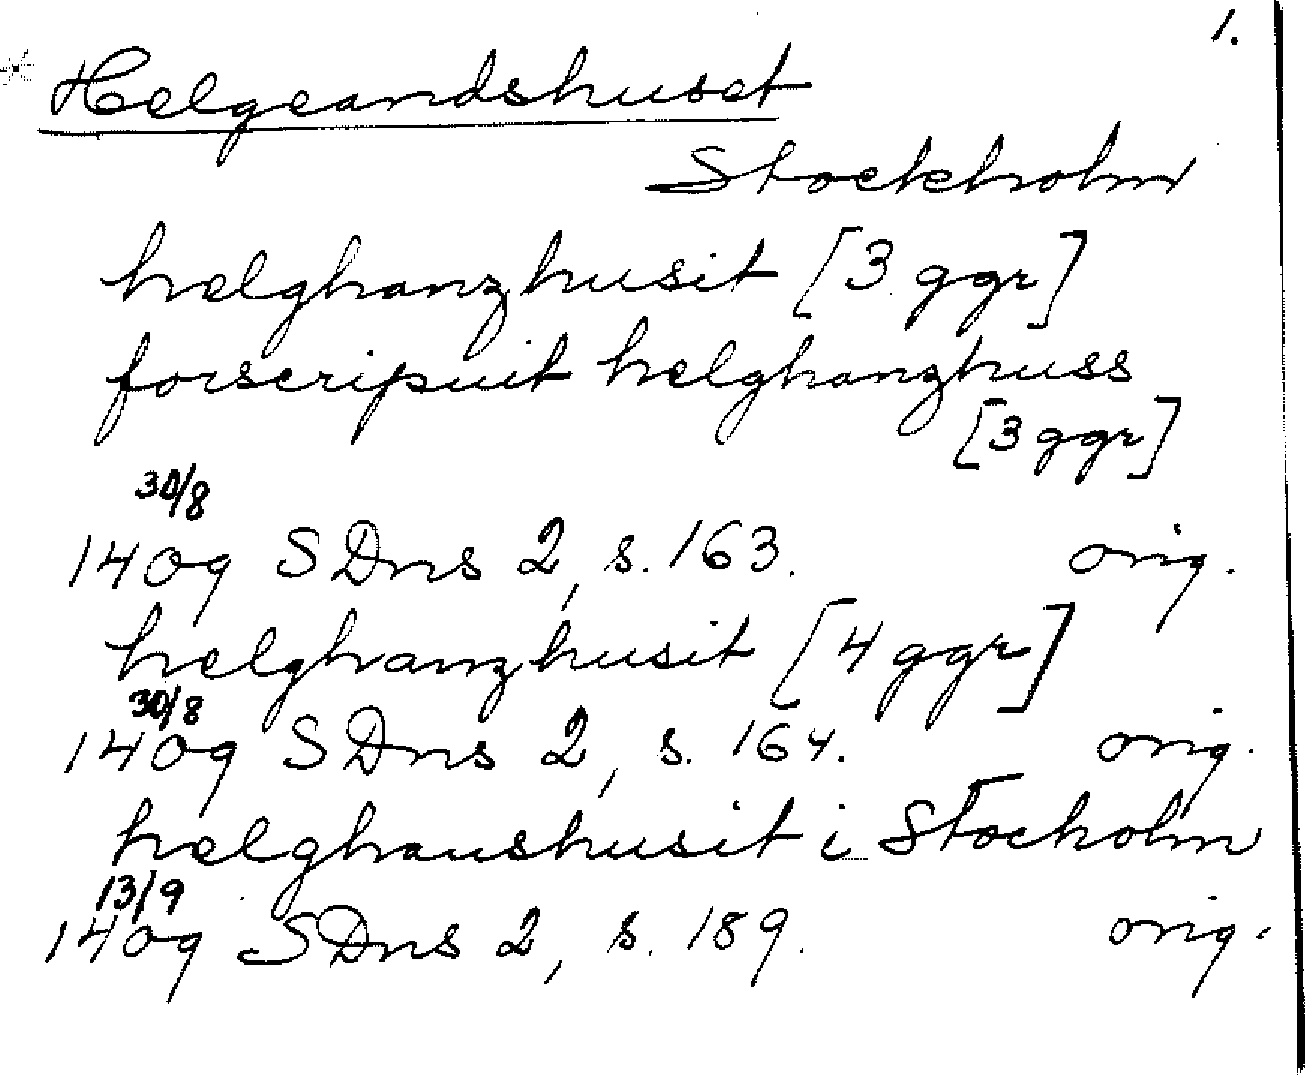 1.
Helgeandshuset
Stockholm
helghanzhusit [3 ggr]
forscripuit helghanzhuss
[3 ggr]
30/8
1409 SDns 2, s. 163. orig.
helghanzhusit [4 ggr]
30/8
1409 SDns 2, s. 164. orig.
helghanshusit i Stocholm
13/9
1409 SDns 2, s. 189. orig.